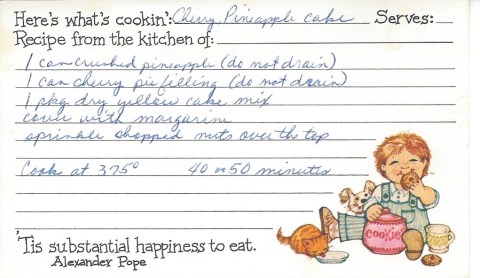 Here's what's cookin': Cherry Pineapple cake Serves:
Recipe from the kitchen of:
1 can crushed pineapple (do not drain)
1 can cherry pie filling (do not drain)
1 pkg dry yellow cake mix
cover with margarine
sprinkle chopped nuts over the top
Cook at 375° 40 or 50 minutes
COOKIE
'Tis substantial happiness to eat.
Alexander Pope